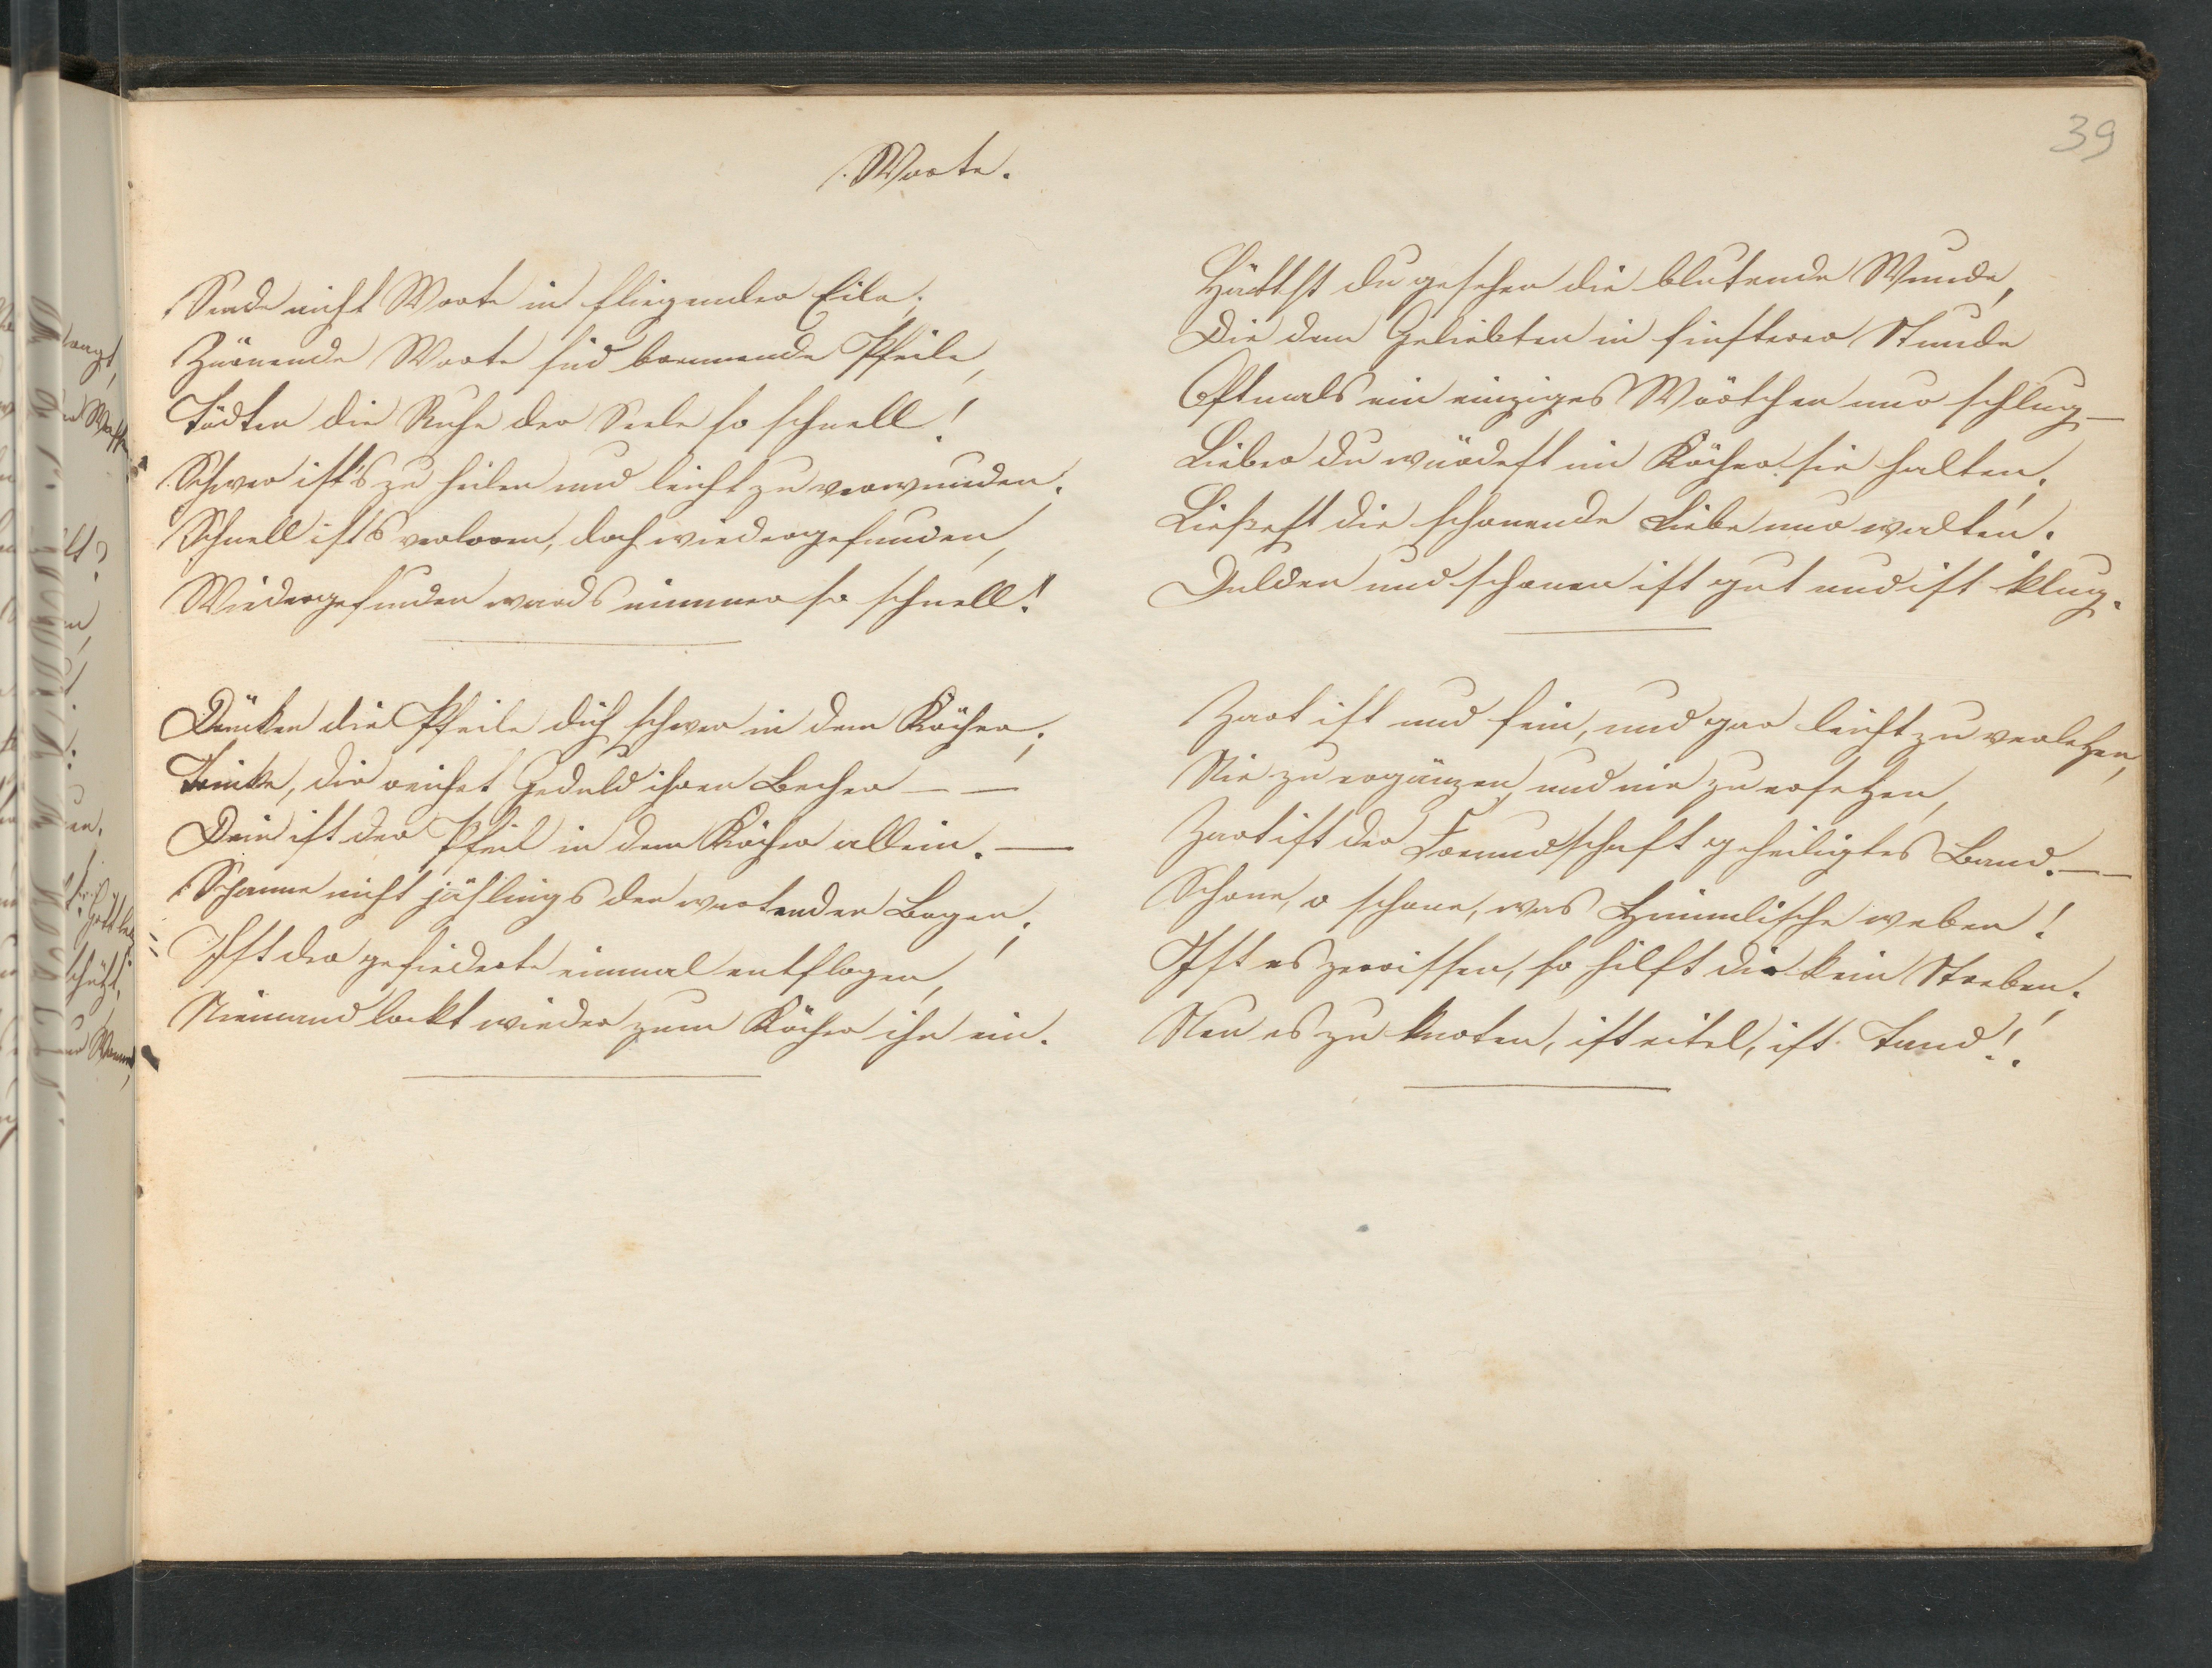 39
Worte.
Sende nicht Worte in fliegender Eile;
Zürnende Worte sind brennende Pfeile,
Tödten die Ruhe der Seele so schnell!
Schwer ist's zu heilen und leicht zu verwunden;
Schnell ists verloren, doch wiedergefunden,
Wiedergefunden wards nimmer so schnell!
Drücken die Pfeile dich schwer in dem Köcher;
Trinke, dir reichet Geduld ihren Becher — —
Dein ist der Pfeil in dem Köcher allein. —
Spanne nicht jählings den wartenden Bogen;
Ist der gefiederte einmal entflogen,
Niemand lockt wieder zum Köcher ihn ein.
Hättst du gesehen die blutende Wunde,
Die dem Geliebten in finsterer Stunde
Oftmals ein einziges Wörtchen nur schlug —
Lieber du würdest im Köcher sie halten,
Ließest die schonende Liebe nur walten;
Dulden und schonen ist gut und ist klug.
Zart ist und fein, und gar leicht zu verletzen,
Nie zu ergänzen, und nie zu ersetzen,
Zart ist der Freundschaft geheiligtes Band. — —
Schone, o schone, was Himmlische weben!
Ist es zerrissen, so hilft dir kein Streben;
Neu es zu knoten, ist eitel, ist Tand!